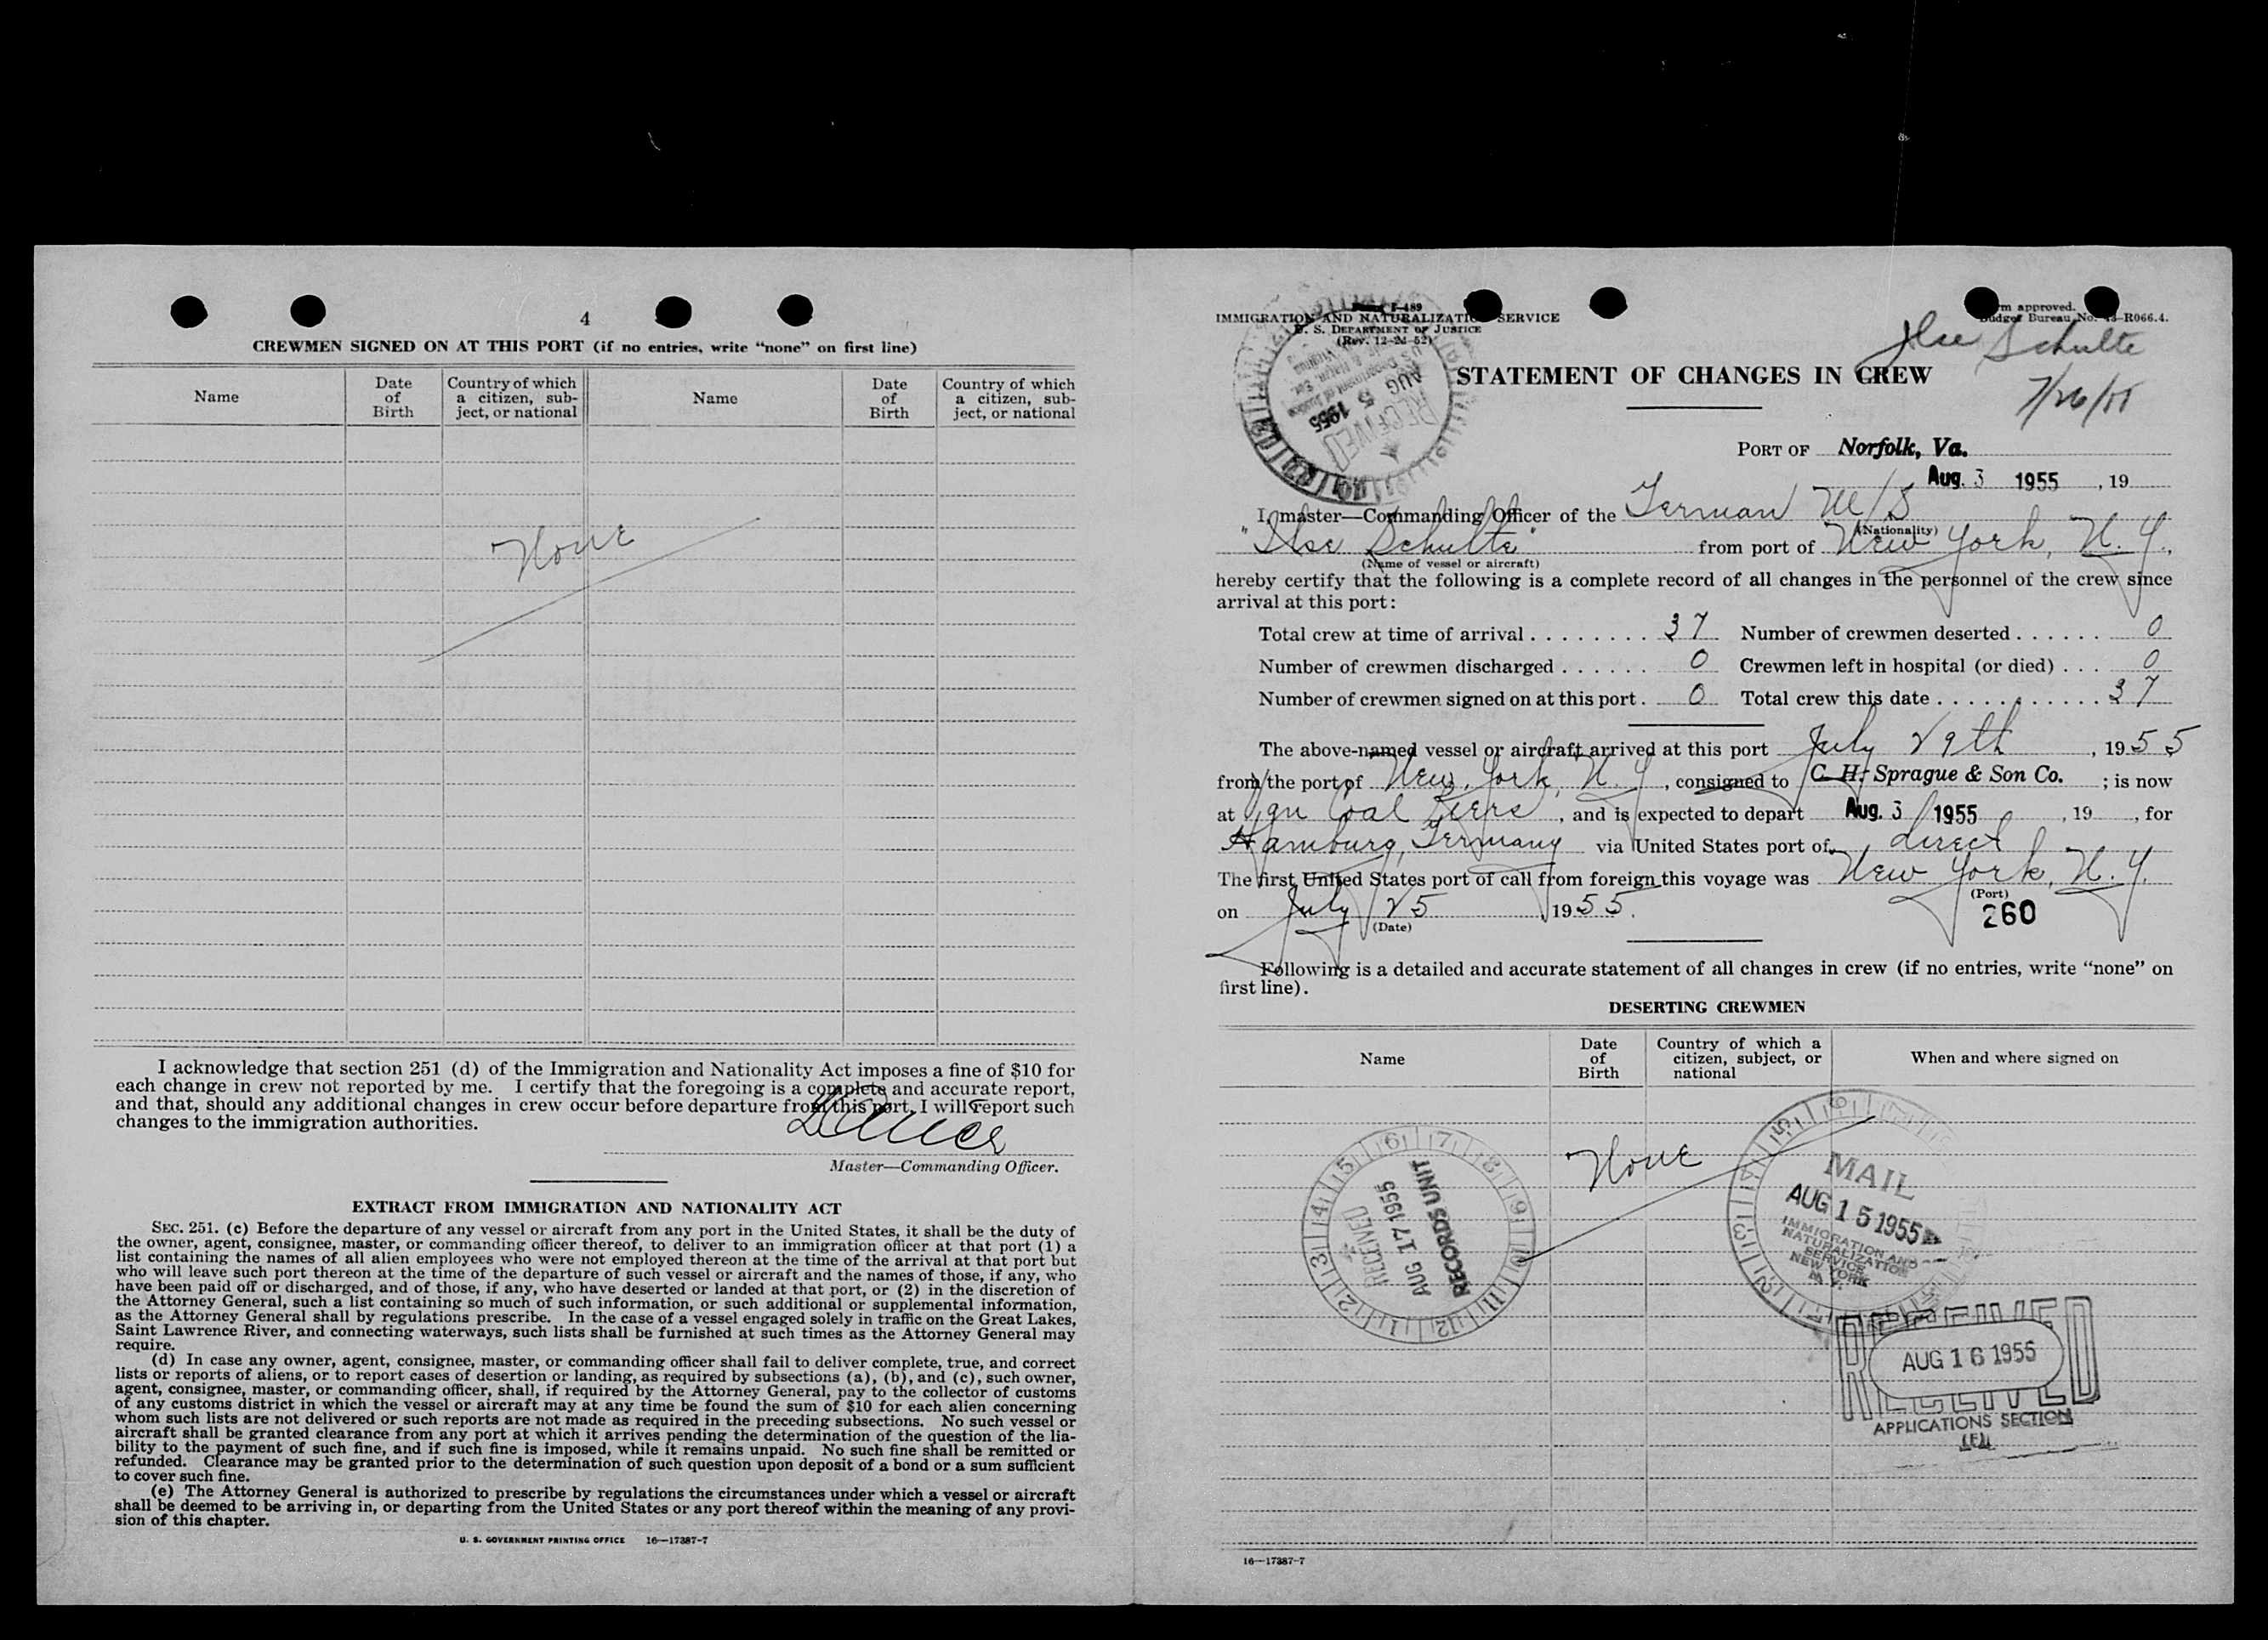 4
CREWMEN SIGNED ON AT THIS PORT (if no entries, write "none" on first line)
Name
Date of Birth
Country of which a citizen, sub-ject, or national
Name
Date of Birth
Country of which a citizen, sub-ject, or national
None
I acknowledge that section 251 (d) of the Immigration and Nationality Act imposes a fine of $10 for
each change in crew not reported by me. I certify that the foregoing is a complete and accurate report,
and that, should any additional changes in crew occur before departure from this port, I will report such
changes to the immigration authorities.
Master—Commanding Officer.
EXTRACT FROM IMMIGRATION AND NATIONALITY ACT
SEC. 251. (c) Before the departure of any vessel or aircraft from any port in the United States, it shall be the duty of
the owner, agent, consignee, master, or commanding officer thereof, to deliver to an immigration officer at that port (1) a
list containing the names of all alien employees who were not employed thereon at the time of the arrival at that port but
who will leave such port thereon at the time of the departure of such vessel or aircraft and the names of those, if any, who
have been paid off or discharged, and of those, if any, who have deserted or landed at that port, or (2) in the discretion of
the Attorney General, such a list containing so much of such information, or such additional or supplemental information,
as the Attorney General shall by regulations prescribe. In the case of a vessel engaged solely in traffic on the Great Lakes,
Saint Lawrence River, and connecting waterways, such lists shall be furnished at such times as the Attorney General may
require.
(d) In case any owner, agent, consignee, master, or commanding officer shall fail to deliver complete, true, and correct
lists or reports of aliens, or to report cases of desertion or landing, as required by subsections (a), (b), and (c), such owner,
agent, consignee, master, or commanding officer, shall, if required by the Attorney General, pay to the collector of customs
of any customs district in which the vessel or aircraft may at any time be found the sum of $10 for each alien concerning
whom such lists are not delivered or such reports are not made as required in the preceding subsections. No such vessel or
aircraft shall be granted clearance from any port at which it arrives pending the determination of the question of the lia-
bility to the payment of such fine, and if such fine is imposed, while it remains unpaid. No such fine shall be remitted or
refunded. Clearance may be granted prior to the determination of such question upon deposit of a bond or a sum sufficient
to cover such fine.
(e) The Attorney General is authorized to prescribe by regulations the circumstances under which a vessel or aircraft
shall be deemed to be arriving in, or departing from the United States or any port thereof within the meaning of any provi-
sion of this chapter.
U. S. GOVERNMENT PRINTING OFFICE 16—17387-7
I-489
IMMIGRATION AND NATURALIZATION SERVICE
U. S. DEPARTMENT OF JUSTICE
(Rev. 12-24-52)
approved.
Budget Bureau No. R066.4.
Ilse Schulte
7/26/55
RECEIVED
AUG 5 1955
STATEMENT OF CHANGES IN CREW
PORT OF Norfolk, Va.
Aug. 3 1955, 19
I, master—Commanding Officer of the German M/S
(Nationality)
"Ilse Schulte" from port of New York, N.Y.,
(Name of vessel or aircraft)
hereby certify that the following is a complete record of all changes in the personnel of the crew since
arrival at this port:
Total crew at time of arrival 37 Number of crewmen deserted 0
Number of crewmen discharged 0 Crewmen left in hospital (or died) 0
Number of crewmen signed on at this port 0 Total crew this date 37
The above-named vessel or aircraft arrived at this port July 29th, 1955
from the port of New York, N.Y., consigned to C. H. Sprague & Son Co.; is now
at Vgn Coal Piers, and is expected to depart Aug. 3 1955, 19, for
Hamburg, Germany via United States port of direct
The first United States port of call from foreign this voyage was New York, N.Y.
(Port)
on July 25 1955.
(Date)
260
Following is a detailed and accurate statement of all changes in crew (if no entries, write "none" on
first line).
DESERTING CREWMEN
Name
Date of Birth
Country of which a citizen, subject, or national
When and where signed on
None
RECEIVED
AUG 17 1955
RECORDS UNIT
MAIL
AUG 15 1955
IMMIGRATION AND
NATURALIZATION
SERVICE
NEW YORK
N.Y.
RECEIVED
AUG 16 1955
APPLICATIONS SECTION
16—17387-7